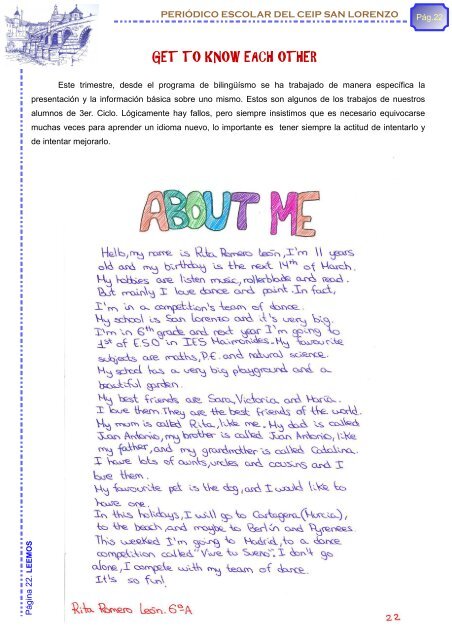 PERIÓDICO ESCOLAR DEL CEIP SAN LORENZO
Pág.22
GET TO KNOW EACH OTHER
Este trimestre, desde el programa de bilingüísmo se ha trabajado de manera específica la
presentación y la información básica sobre uno mismo. Estos son algunos de los trabajos de nuestros
alumnos de 3er. Ciclo. Lógicamente hay fallos, pero siempre insistimos que es necesario equivocarse
muchas veces para aprender un idioma nuevo, lo importante es tener siempre la actitud de intentarlo y
de intentar mejorarlo.
ABOUT ME
Hello, my name is Rita Romero León, I'm 11 years
old and my birthday is the next 14th of March.
My hobbies are listen music, rollerblade and read.
But mainly I love dance and paint. In fact,
I'm in a competition's team of dance.
My school is San Lorenzo and it's very big.
I'm in 6th grade and next year I'm going to
1st of E.S.O in IES Maimonides. My favourite
subjects are maths, P.E. and natural science.
My school has a very big playground and a
beautiful garden.
My best friends are Sara, Victoria and María.
I love them. They are the best friends of the world.
My mum is called Rita, like me. My dad is called
Juan Antonio, my brother is called Juan Antonio, like
my father, and my grandmother is called Catalina.
I have lots of aunts, uncles and cousins and I
love them.
My favourite pet is the dog, and I would like to
have one.
In this holidays, I will go to Cartagena (Murcia),
to the beach, and maybe to Berlín and Pyrenees.
This weekend I'm going to Madrid, to a dance
competition called "Vive tu Sueño". I don't go
alone, I compete with my team of dance.
It's so fun!
Rita Romero León. 6ºA
22
Página 22. LEEMOS